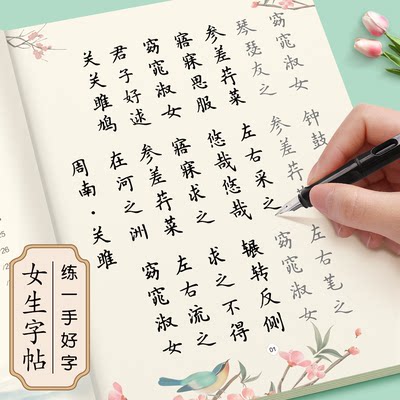 周南·关雎
关关雎鸠 在河之洲 窈窕淑女
君子好逑 参差荇菜 左右流之
窈窕淑女 寤寐求之 求之不得
寤寐思服 悠哉悠哉 辗转反侧
参差荇菜 左右采之 窈窕淑女
琴瑟友之 参差荇菜 左右芼之
窈窕淑女 钟鼓
01
练一手好字
女生字帖